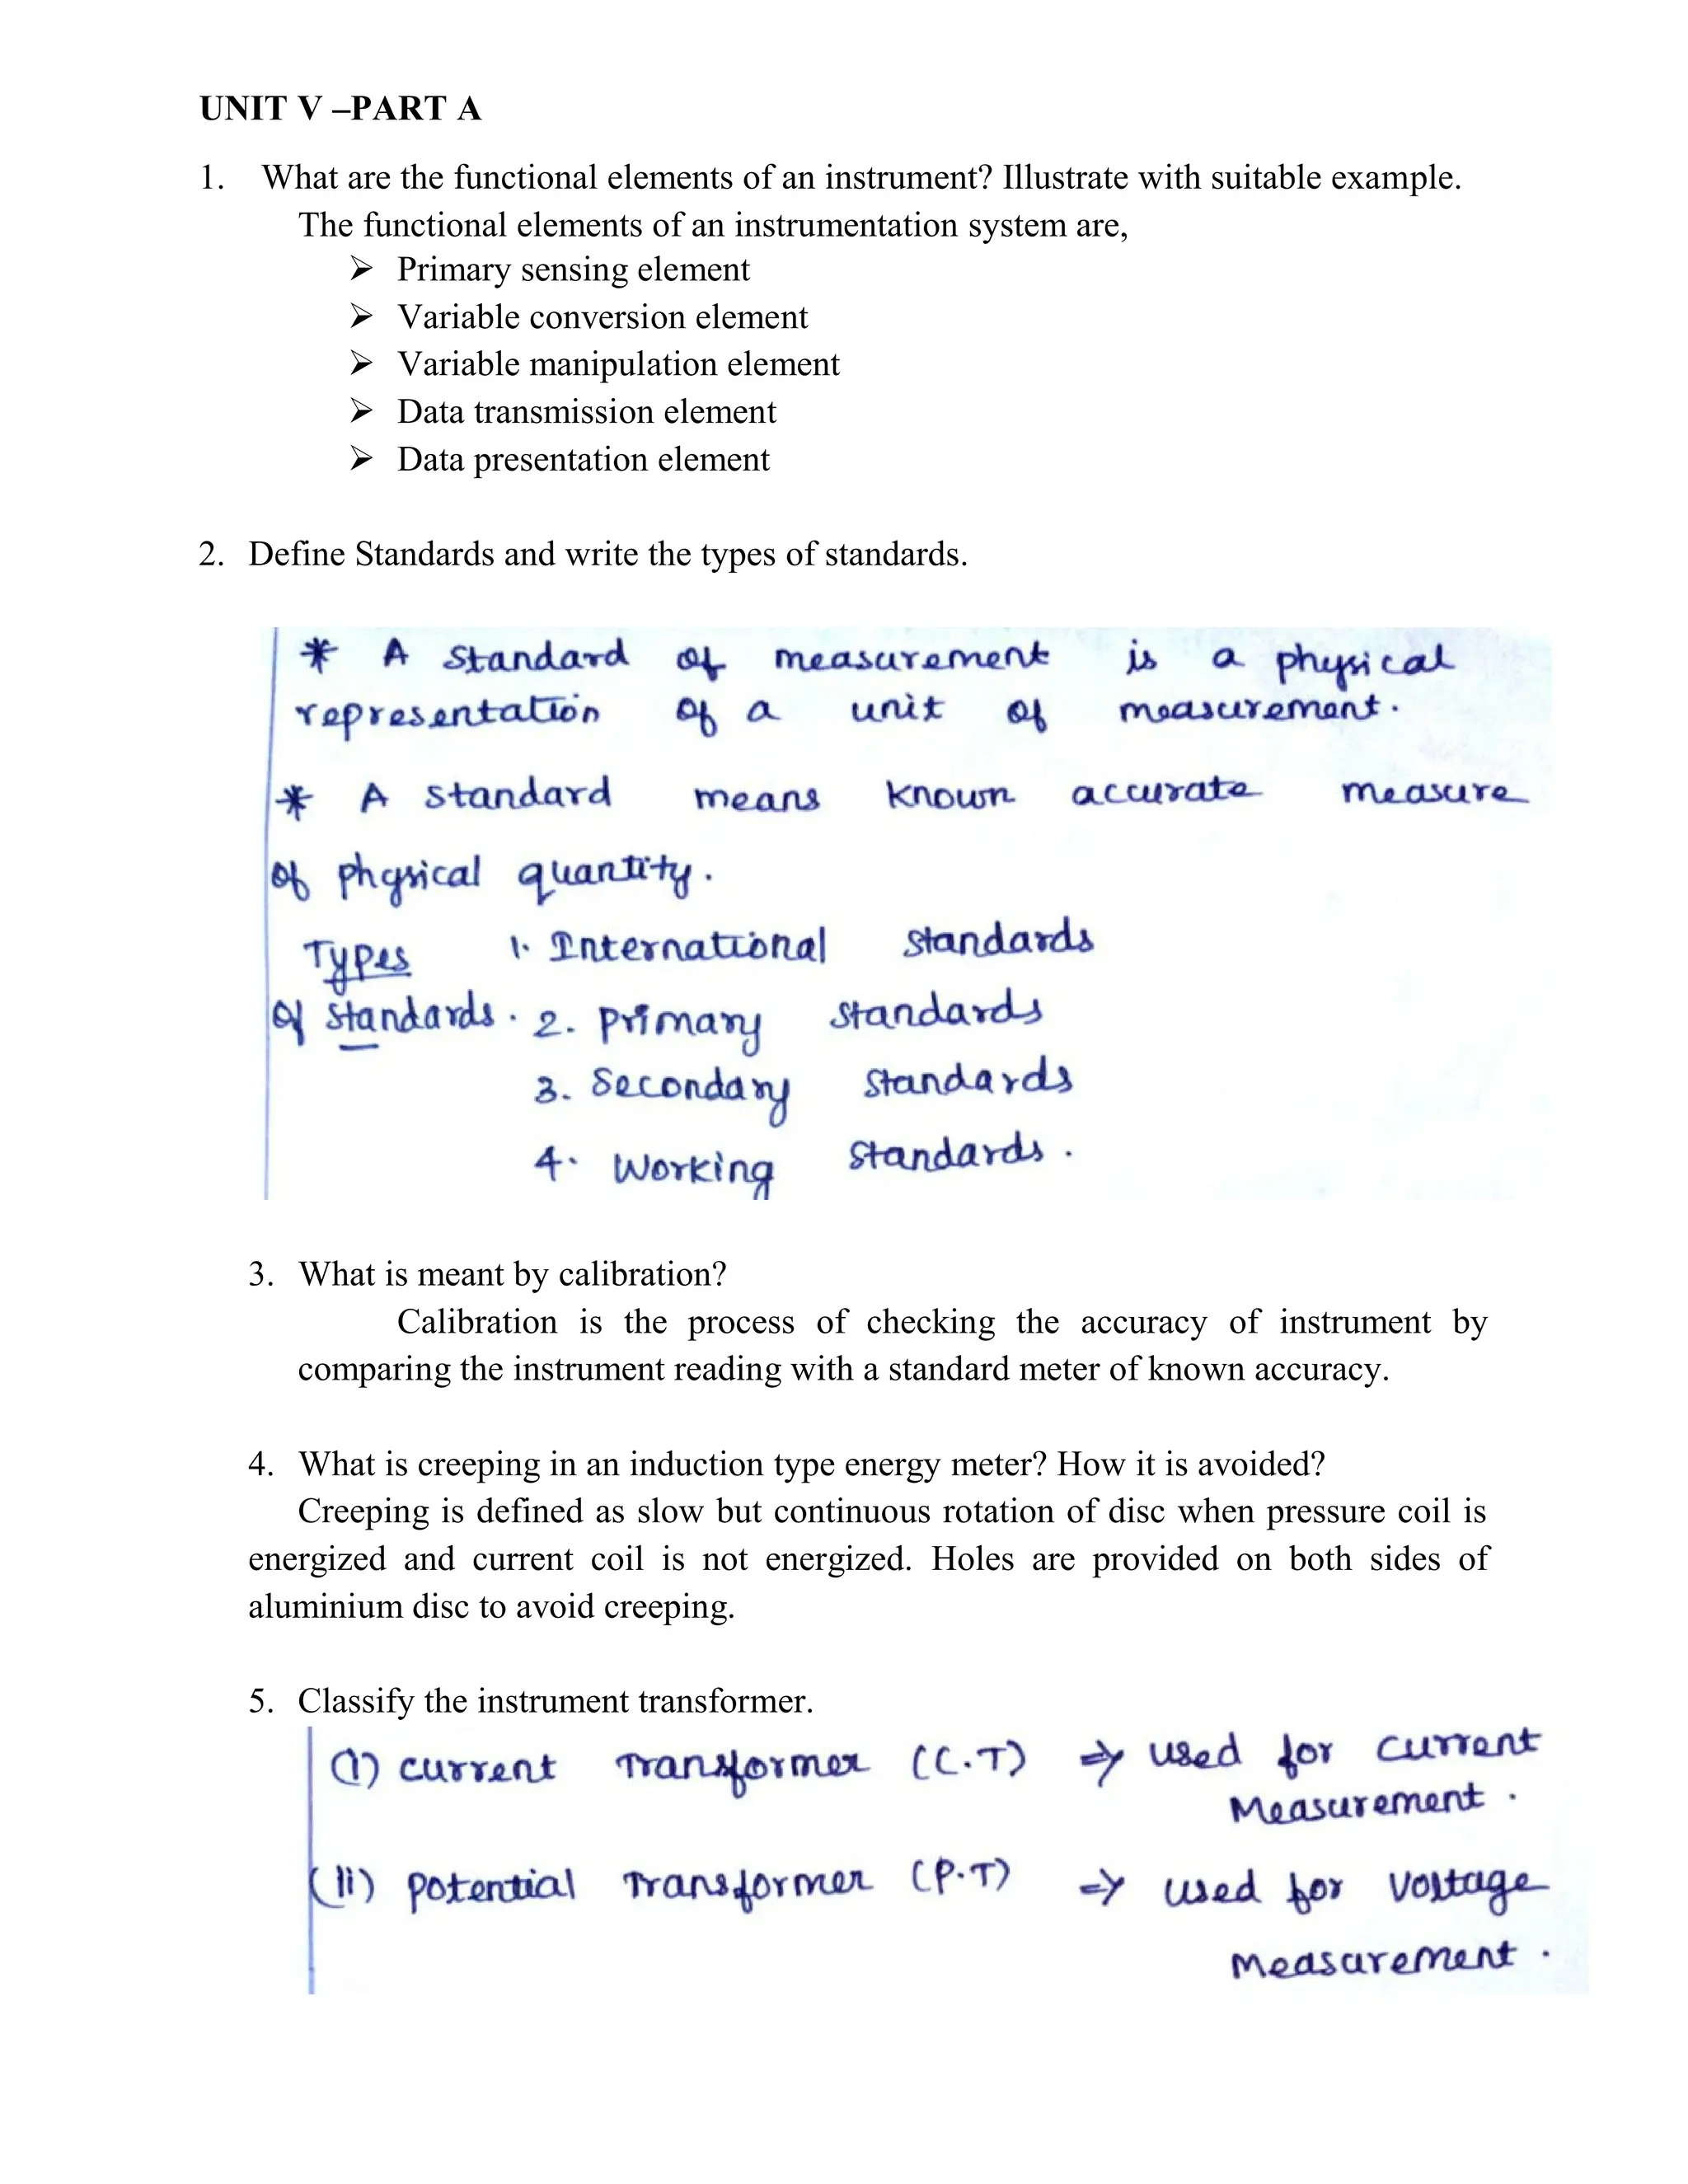 UNIT V –PART A
1. What are the functional elements of an instrument? Illustrate with suitable example.
The functional elements of an instrumentation system are,
➢ Primary sensing element
➢ Variable conversion element
➢ Variable manipulation element
➢ Data transmission element
➢ Data presentation element
2. Define Standards and write the types of standards.
* A standard of measurement is a physical
representation of a unit of measurement.
* A standard means known accurate measure
of physical quantity.
Types 1. International standards
of standards. 2. Primary standards
3. Secondary standards
4. Working standards.
3. What is meant by calibration?
Calibration is the process of checking the accuracy of instrument by
comparing the instrument reading with a standard meter of known accuracy.
4. What is creeping in an induction type energy meter? How it is avoided?
Creeping is defined as slow but continuous rotation of disc when pressure coil is
energized and current coil is not energized. Holes are provided on both sides of
aluminium disc to avoid creeping.
5. Classify the instrument transformer.
(i) current Transformer (C.T) ⇒ used for current
Measurement.
(ii) potential Transformer (P.T) ⇒ used for voltage
measurement.